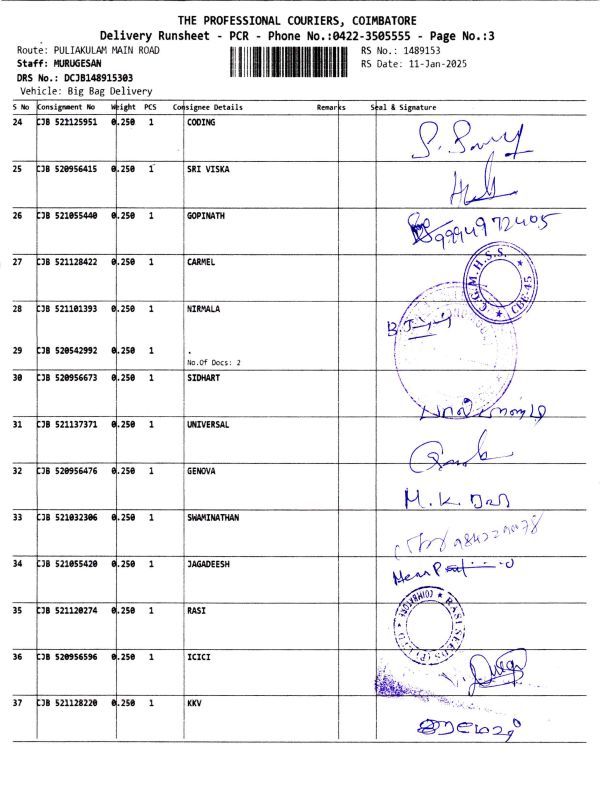 THE PROFESSIONAL COURIERS, COIMBATORE
Delivery Runsheet - PCR - Phone No.:0422-3505555 - Page No.:3
Route: PULIAKULAM MAIN ROAD
RS No.: 1489153
Staff: MURUGESAN
RS Date: 11-Jan-2025
DRS No.: DCJB148915303
Vehicle: Big Bag Delivery
S No Consignment No Weight PCS Consignee Details Remarks Seal & Signature
24 CJB 521125951 0.250 1 CODING
25 CJB 520956415 0.250 1 SRI VISKA
26 CJB 521055440 0.250 1 GOPINATH 9994972405
27 CJB 521128422 0.250 1 CARMEL C.G.M.H.S.S. ★ CBE-45 ★
28 CJB 521101393 0.250 1 NIRMALA
29 CJB 520542992 0.250 1 .
No.Of Docs: 2
30 CJB 520956673 0.250 1 SIDHART
31 CJB 521137371 0.250 1 UNIVERSAL
32 CJB 520956476 0.250 1 GENOVA M.K.
33 CJB 521032306 0.250 1 SWAMINATHAN
34 CJB 521055420 0.250 1 JAGADEESH
35 CJB 521120274 0.250 1 RASI ★ RASI SEEDS (P) LTD ★ COIMBATORE
36 CJB 520956596 0.250 1 ICICI
37 CJB 521128220 0.250 1 KKV